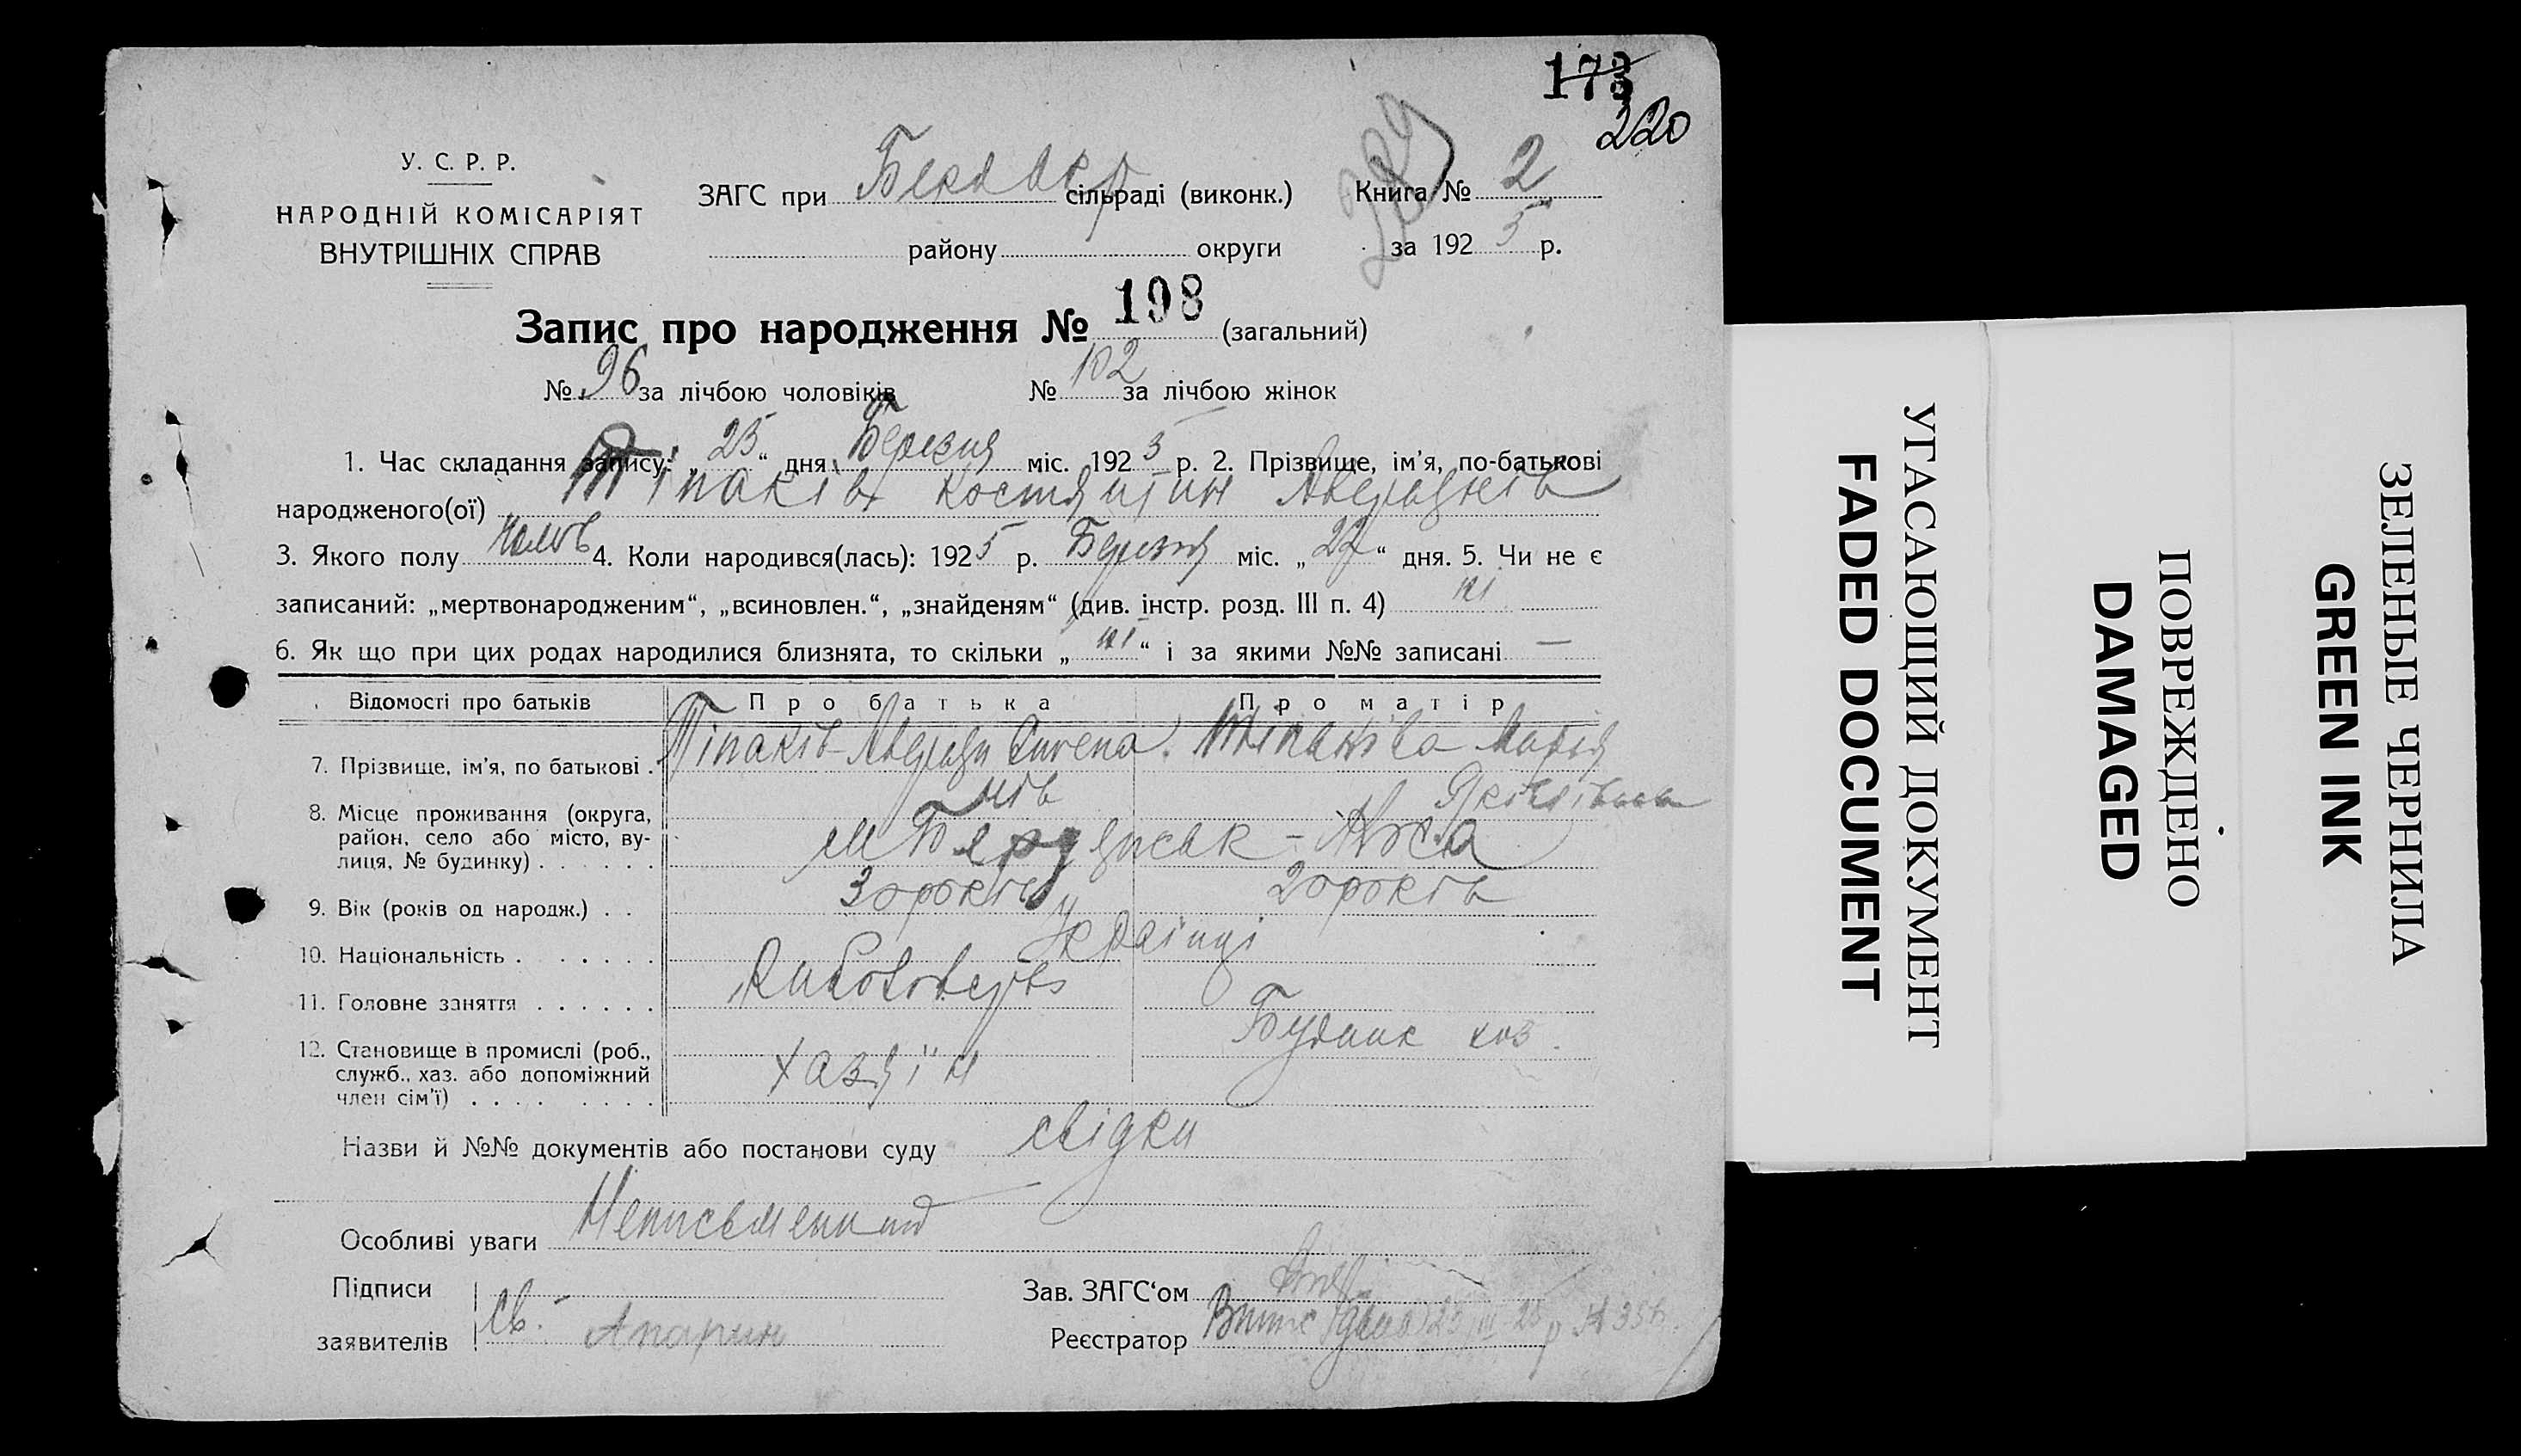 173
220
229
У. С. Р. Р.
НАРОДНІЙ КОМІСАРІЯТ
ВНУТРІШНІХ СПРАВ
ЗАГС при сільраді (виконк.) Книга № 2
району округи за 1925 р.
Запис про народження № 198 (загальний)
№ 96 за лічбою чоловіків № 102 за лічбою жінок
1. Час складання запису: „25“ дня Березня міс. 1925 р. 2. Прізвище, ім'я, по-батькові
народженого(ої) Тіпаків Костянтин
3. Якого полу Чолов 4. Коли народився(лась): 1925 р. Березня міс. „22“ дня. 5. Чи не є
записаний: „мертвонародженим“, „всиновлен.“, „знайденям“ (див. інстр. розд. III п. 4) ні
6. Як що при цих родах народилися близнята, то скільки „ні“ і за якими №№ записані —
Відомості про батьків Про батька Про матір
7. Прізвище, ім'я, по батькові . Тіпаків Тіпаківа Марія
Яківівна
8. Місце проживання (округа,
район, село або місто, ву-
лиця, № будинку) . . . . . . м Бердянськ - Коса
9. Вік (років од народж.) . . 30 років 20 років
10. Національність . . . . . . . Українці
11. Головне заняття . . . . . . Риболовець
12. Становище в промислі (роб.,
служб., хаз. або допоміжний
член сім'ї) . . . . . . . . хазяїн Будинк хоз.
Назви й №№ документів або постанови суду свідки
Особливі уваги Неписьменний
Підписи
заявителів Св. Апарин
Зав. ЗАГС'ом
Реєстратор
УГАСАЮЩИЙ ДОКУМЕНТ
FADED DOCUMENT
ПОВРЕЖДЕНО
DAMAGED
ЗЕЛЕНЫЕ ЧЕРНИЛА
GREEN INK